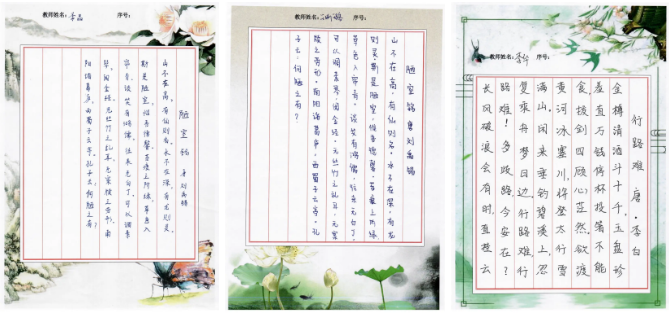 教师姓名: 序号:
陋室铭 唐 刘禹锡
山不在高，有仙则名。水不在深，有龙则灵。
斯是陋室，惟吾德馨。苔痕上阶绿，草色入
帘青。谈笑有鸿儒，往来无白丁。可以调素
琴，阅金经。无丝竹之乱耳，无案牍之劳形。南
阳诸葛庐，西蜀子云亭。孔子云：何陋之有？
教师姓名: 序号:
陋室铭 唐 刘禹锡
山不在高，有仙则名。水不在深，有龙
则灵。斯是陋室，惟吾德馨。苔痕上阶绿，
草色入帘青。谈笑有鸿儒，往来无白丁。
可以调素琴，阅金经。无丝竹之乱耳，无案
牍之劳形。南阳诸葛庐，西蜀子云亭。孔
子云：何陋之有？
教师姓名: 序号:
行路难 唐·李白
金樽清酒斗十千，玉盘珍
羞直万钱。停杯投箸不能
食，拔剑四顾心茫然。欲渡
黄河冰塞川，将登太行雪
满山。闲来垂钓碧溪上，忽
复乘舟梦日边。行路难，行
路难！多歧路，今安在？
长风破浪会有时，直挂云